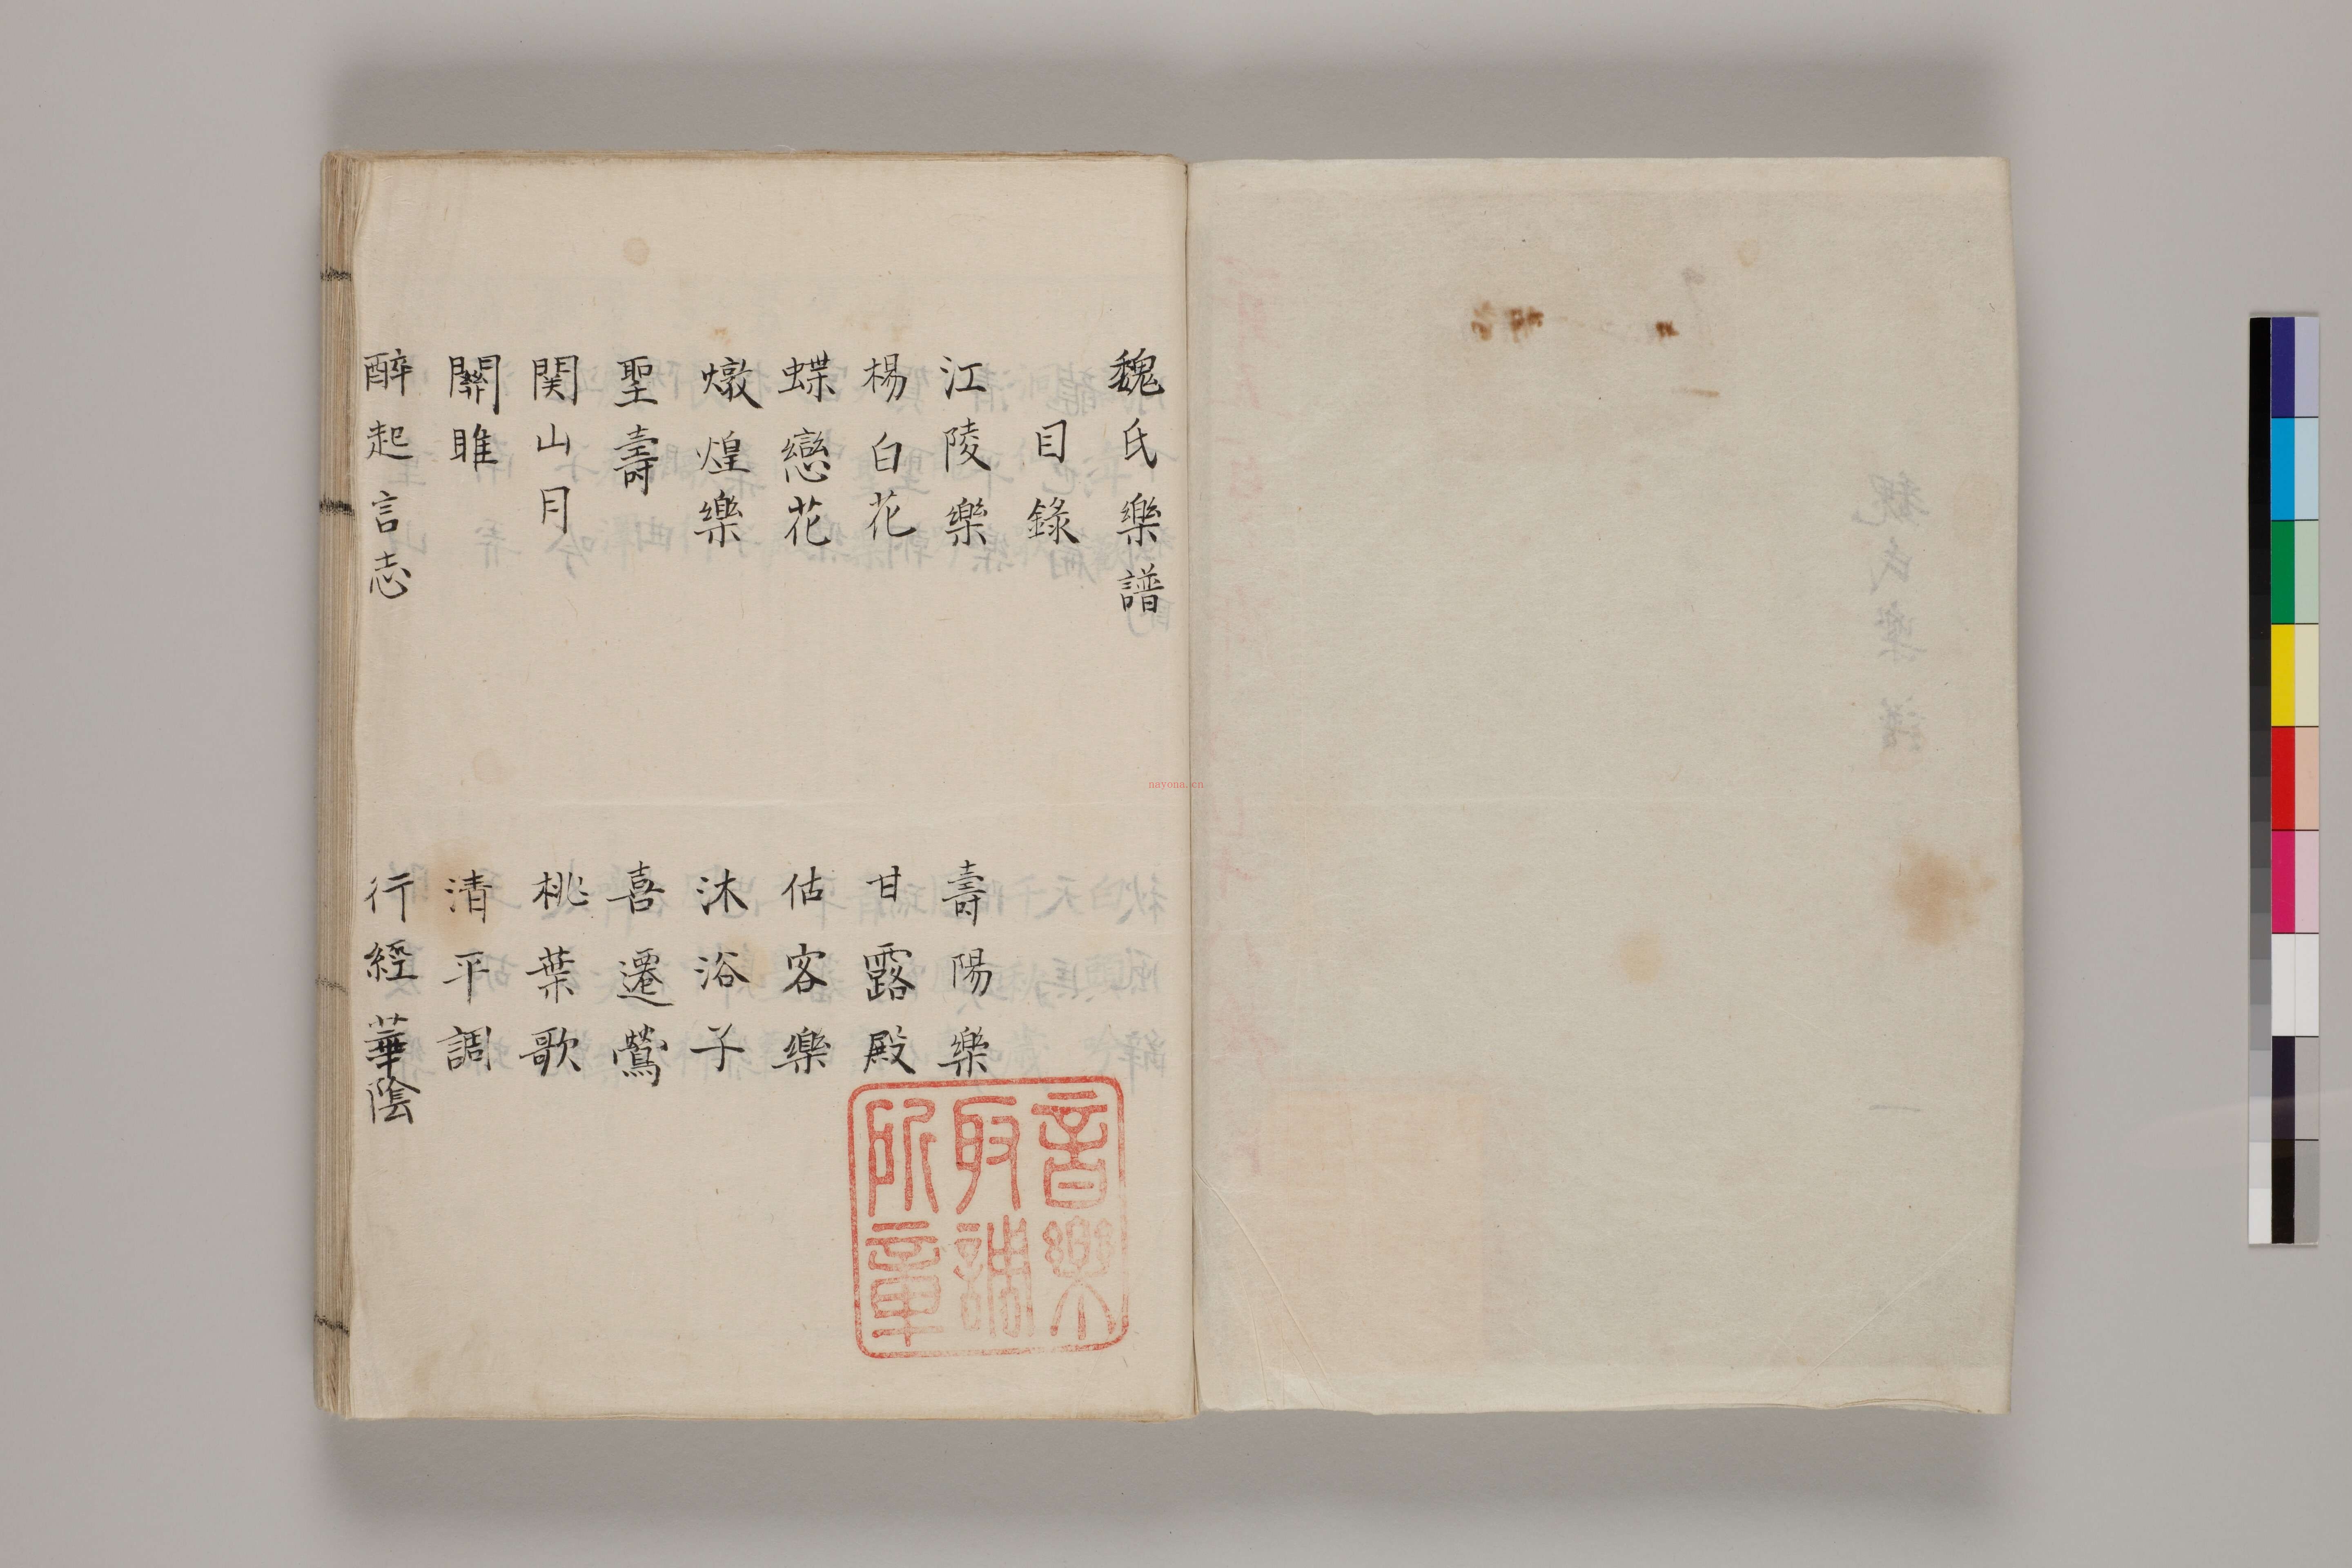 魏氏樂譜
目錄
江陵樂
壽陽樂
楊白花
甘露殿
蝶戀花
估客樂
燉煌樂
沐浴子
聖壽
喜遷鶯
関山月
桃葉歌
關雎
清平調
醉起言志
行經華陰
音樂
取調
所章
nayona.cn